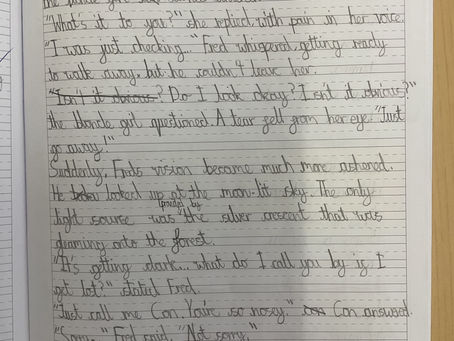 "What's it to you?" she replied with pain in her voice.
"I was just checking..." Fred whispered, getting ready
to walk away, but he couldn't leave her.
Isn't it obvious? Do I look okay? Isnt it obvious?"
the blonde girl questioned. A tear fell from her eye. "Just
go away!"
Suddenly, Freds vision became much more
He looked up at the moon-lit sky. The only
light source was by the silver crescent that was
gleaming onto the forest.
"It's getting dark... what do I call you by if I
get lot?" stated Fred.
"Just call me Con. You're so nosey." Con answered.
"Sorry," Fred said. "Not sorry."